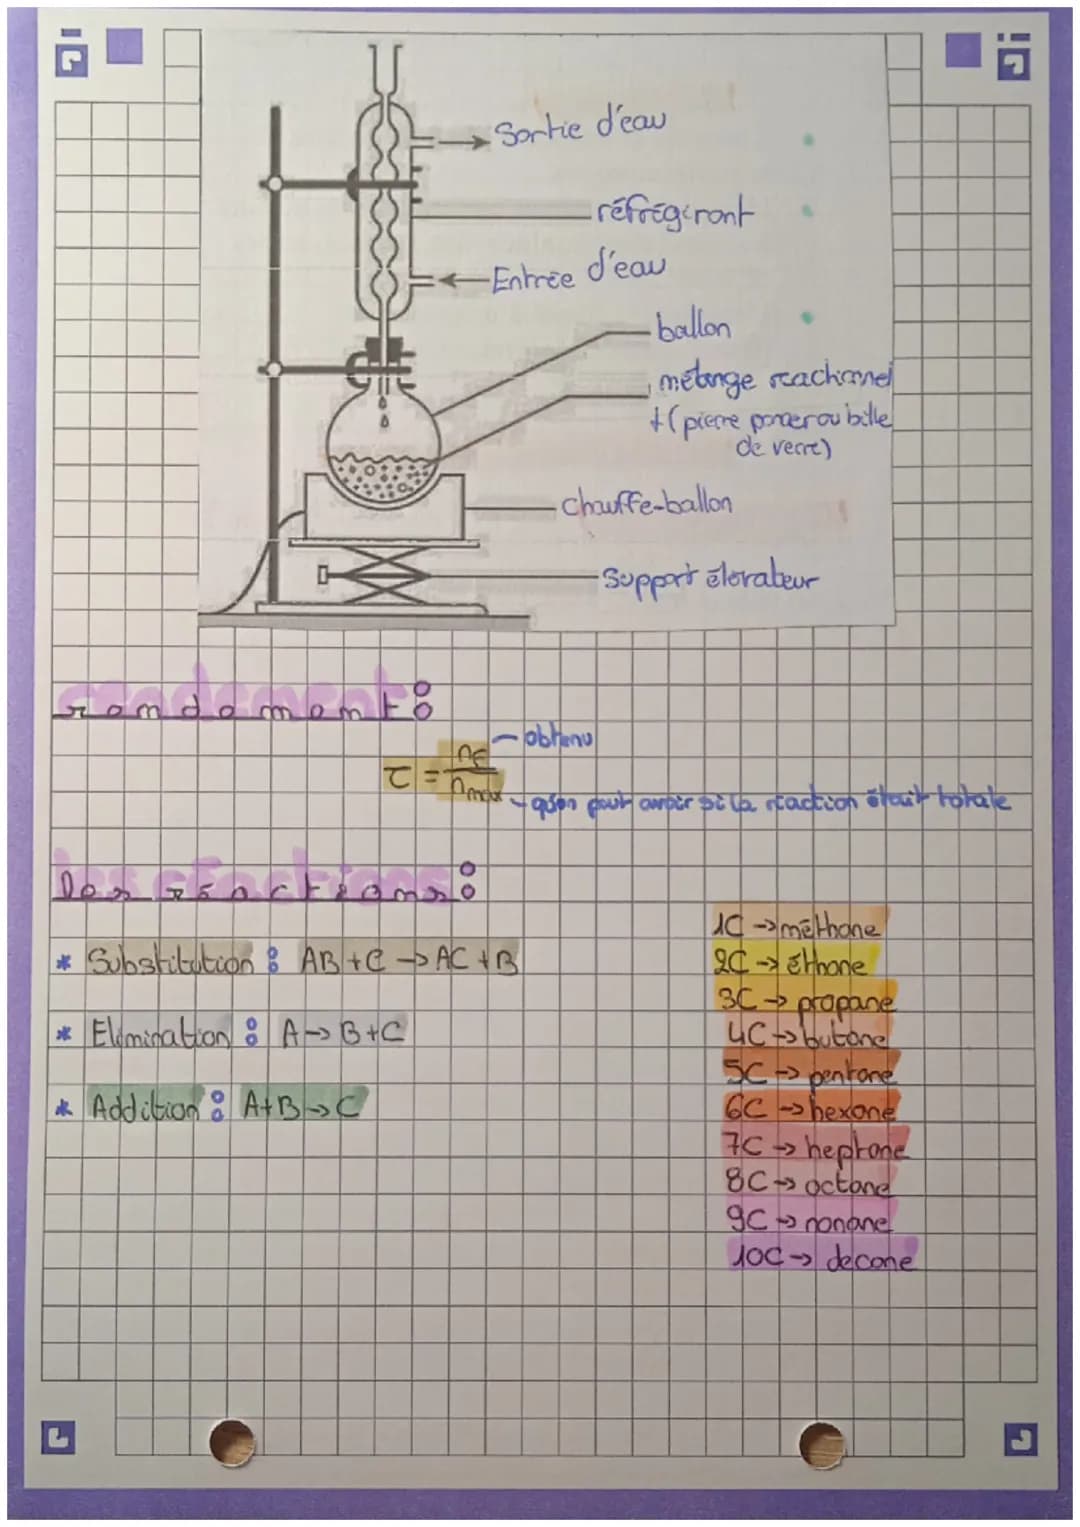 Sortie d'eau
réfrigérant
Entrée d'eau
ballon
mélange réactionnel
+ (pierre ponce ou bille
de verre)
chauffe-ballon
Support élévateur
rendement :
τ = nf / nmax
obtenu
qu'on peut avoir si la réaction était totale
les réactions :
* Substitution : AB + C → AC + B
* Elimination : A → B + C
* Addition : A + B → C
1C → méthane
2C → éthane
3C → propane
4C → butane
5C → pentane
6C → hexane
7C → heptane
8C → octane
9C → nonane
10C → decane